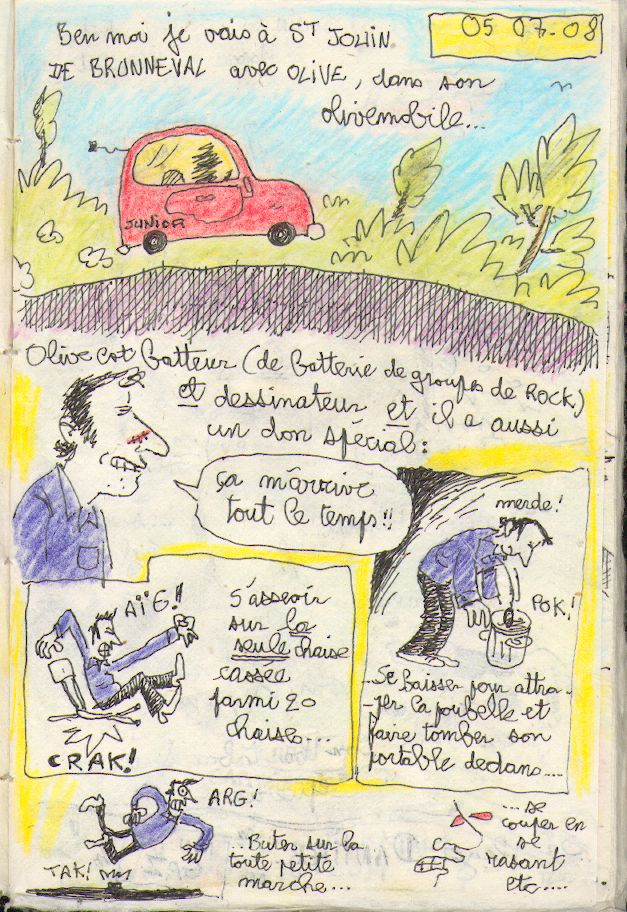 05 07-08
Ben moi je vais à ST JOUIN
DE BRUNNEVAL avec OLIVE, dans son
olivemobile...
JUNIOR
Olive est batteur (de batterie de groupes de ROCK)
et dessinateur et il a aussi
un don spécial :
ça m'arrive
tout le temps!!
AÏE!!
S'asseoir
sur la
seule chaise
cassée
parmi 20
chaises...
CRAK!
merde!
POK!
...Se baisser pour attra-
-per la poubelle et
faire tomber son
portable dedans....
ARG!
TAK!
...Buter sur la
toute petite
marche...
...se
couper en
se
rasant
etc....